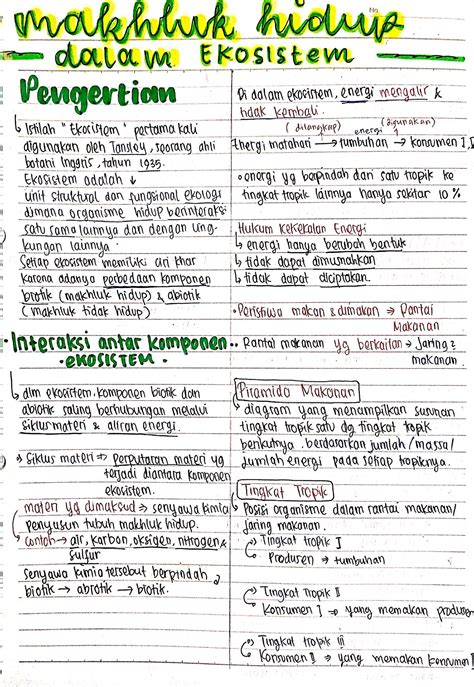 makhluk hidup
dalam EKOSISTEM
Pengertian
Istilah "Ekosistem" pertama kali
digunakan oleh Tansley, seorang ahli
botani Inggris, tahun 1935.
Ekosistem adalah ↓
unit struktural dan fungsional ekologi
dimana organisme hidup berinteraksi
satu sama lainnya dan dengan ling-
kungan lainnya.
Setiap ekosistem memiliki ciri khas
karena adanya perbedaan komponen
biotik (makhluk hidup) & abiotik
(makhluk tidak hidup)
• Interaksi antar komponen •
• EKOSISTEM •
dlm ekosistem, komponen biotik dan
abiotik saling berhubungan melalui
siklus materi & aliran energi.
Siklus materi ⇒ perputaran materi yg
terjadi diantara komponen
ekosistem.
materi yg dimaksud → senyawa kimia
penyusun tubuh makhluk hidup.
contoh → air, karbon, oksigen, nitrogen &
sulfur
senyawa kimia tersebut berpindah
biotik → abiotik → biotik.
Di dalam ekosistem, energi mengalir &
tidak kembali.
(ditangkap) energi (digunakan)
Energi matahari → tumbuhan → konsumen I,
• energi yg berpindah dari satu tropik ke
tingkat tropik lainnya hanya sekitar 10%
Hukum Kekekalan Energi
↳ energi hanya berubah bentuk
↳ tidak dapat dimusnahkan
↳ tidak dapat diciptakan.
• Peristiwa makan & dimakan ⇒ Rantai
Makanan
• Rantai makanan yg berkaitan → Jaring2
makanan
Piramida Makanan
↳ diagram yang menampilkan susunan
tingkat tropik satu dg tingkat tropik
berikutnya. berdasarkan jumlah/massa/
jumlah energi pada setiap tropiknya.
Tingkat Tropik
↳ Posisi organisme dalam rantai makanan/
jaring makanan.
Tingkat tropik I
Produsen → tumbuhan
Tingkat Tropik II
Konsumen I → yang memakan produsen
Tingkat tropik III
Konsumen II → yang memakan konsumen I